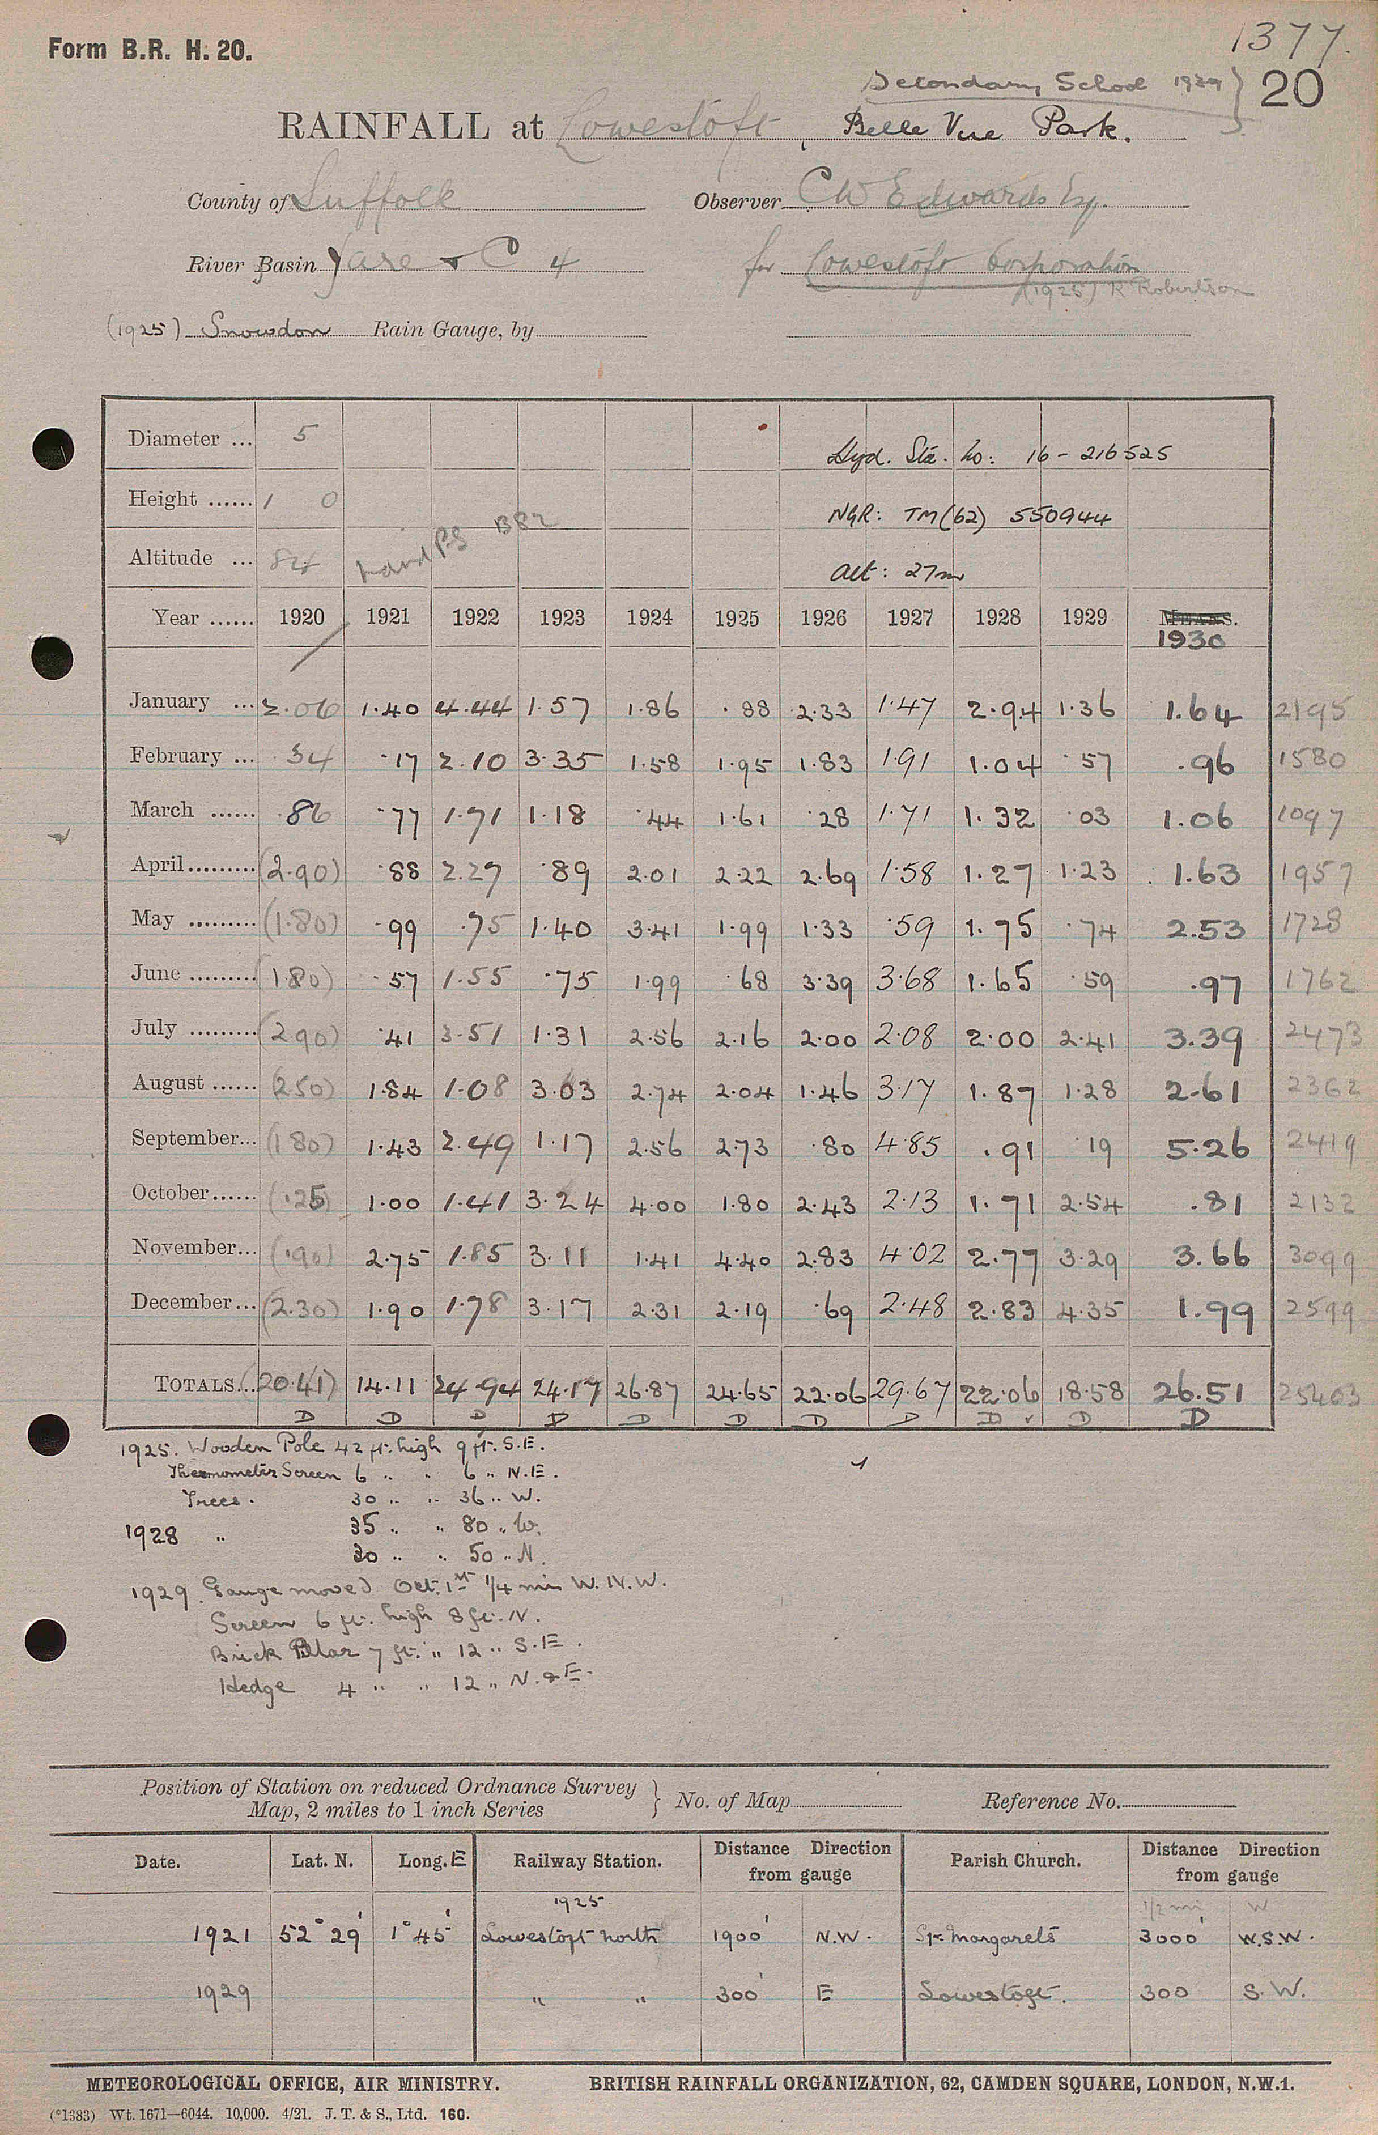 Form B.R. H. 20.
1377.
Secondary School 1929 } 20
RAINFALL at Lowestoft, Belle Vue Park.
County of Suffolk Observer C W Edwards Esq.
River Basin Yare & C 4 for Lowestoft Corporation
(1925) R Robertson
(1925) Snowdon Rain Gauge, by
Diameter ... 5 Hyd. Sta. No: 16 - 216525
Height ...... 1 0 NGR: TM(62) 550944
Altitude ... 84 BR2 Alt: 27m
Year ...... 1920 1921 1922 1923 1924 1925 1926 1927 1928 1929 MEANS.
1930
January ... 2.06 1.40 4.44 1.57 1.86 .88 2.33 1.47 2.94 1.36 1.64 2195
February ... .34 .17 2.10 3.35 1.58 1.95 1.83 1.91 1.04 .57 .96 1580
March ...... .86 .77 1.71 1.18 .44 1.61 .28 1.71 1.32 .03 1.06 1097
April ......... (2.90) .88 2.27 .89 2.01 2.22 2.69 1.58 1.27 1.23 1.63 1957
May ......... (1.80) .99 .75 1.40 3.41 1.99 1.33 .59 1.75 .74 2.53 1728
June ......... (1.80) .57 1.55 .75 1.99 .68 3.39 3.68 1.65 .59 .97 1762
July ......... (2.90) .41 3.51 1.31 2.56 2.16 2.00 2.08 2.00 2.41 3.39 2473
August ...... (2.50) 1.84 1.08 3.03 2.74 2.04 1.46 3.17 1.87 1.28 2.61 2362
September... (1.80) 1.43 2.49 1.17 2.56 2.73 .80 4.85 .91 .19 5.26 2419
October...... (.25) 1.00 1.41 3.24 4.00 1.80 2.43 2.13 1.71 2.54 .81 2132
November... (.90) 2.75 1.85 3.11 1.41 4.40 2.83 4.02 2.77 3.29 3.66 3099
December... (2.30) 1.90 1.78 3.17 2.31 2.19 .69 2.48 2.83 4.35 1.99 2599
TOTALS... (20.41) 14.11 24.94 24.17 26.87 24.65 22.06 29.67 22.06 18.58 26.51 25403
D D D D D D D D D ✓ D D
1925. Wooden Pole 42 ft. high 9 ft. S.E.
Thermometer Screen 6 " " 6 " N.E.
Trees. 30 " " 36 " W.
1928 " 35 " " 80 " W.
30 " " 50 " N.
1929. Gauge moved Oct. 1st 1/4 mile W.N.W.
Screen 6 ft. high 8 ft. N.
Brick Pillar 7 ft. " 12 " S.E.
Hedge 4 " " 12 " N. & E.
Position of Station on reduced Ordnance Survey
Map, 2 miles to 1 inch Series } No. of Map Reference No.
Date. Lat. N. Long. E Railway Station. Distance Direction from gauge Parish Church. Distance Direction from gauge
1925 1/2 mi W
1921 52° 29' 1° 45' Lowestoft North 1900' N.W. St. Margaret's 3000' W.S.W.
1929 " " 300' E Lowestoft. 300 S.W.
METEOROLOGICAL OFFICE, AIR MINISTRY. BRITISH RAINFALL ORGANIZATION, 62, CAMDEN SQUARE, LONDON, N.W.1.
(*1383) Wt. 1671—6044. 10,000. 4/21. J. T. & S., Ltd. 160.